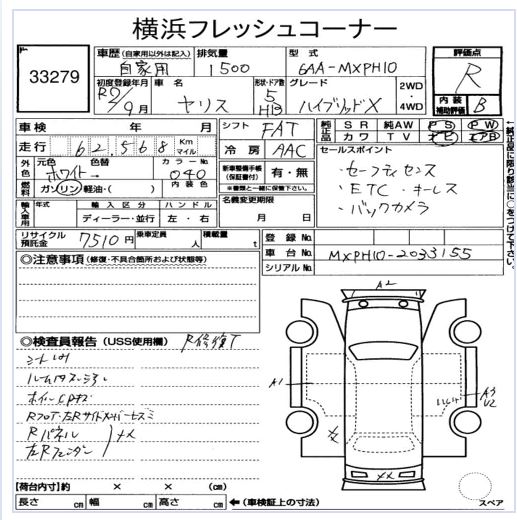 横浜フレッシュコーナー
33279
車歴 (自家用以外は記入) 自家用
排気量 1500
型式 6AA-MXPH10
評価点 R
初度登録年月 R2/9月
車名 ヤリス
形状・ドア数 5 HB
グレード ハイブリッドX
2WD・4WD
内装補助評価 B
車検 年 月
シフト FAT
純正品 SR 純AW PS PW
カワ TV ナビ エアB
走行 62,568 Km マイル
冷房 AAC
セールスポイント
外色 元色 ホワイト 色替 → カラーNo. 040
・セーフティセンス
新車整備手帳(保証書付) 有・無
※書類と一緒に保管下さい。
・ETC ・キーレス
燃料 ガソリン 軽油・( ) 内装色
・バックカメラ
輸入車用 年式 輸入区分 ディーラー・並行 ハンドル 左・右
名義変更期限 月 日
←純正品に限り該当に○をつけて下さい。
リサイクル預託金 7510円
乗車定員 人
積載量 t
登録No.
車台No. MXPH10-2033155
シリアルNo.
◎注意事項 (修復・不具合箇所および状態等)
◎検査員報告 (USS使用欄) R修復T
シート
ホイールCP
RフロT・左Rサイドメンバーセズミ
Rパネル
左Rフェンダー
メメ
A2
A1
A3
U2
メ
メメ
【荷台内寸】約 × × (cm)
長さ cm 幅 cm 高さ cm ←(車検証上の寸法)
スペア